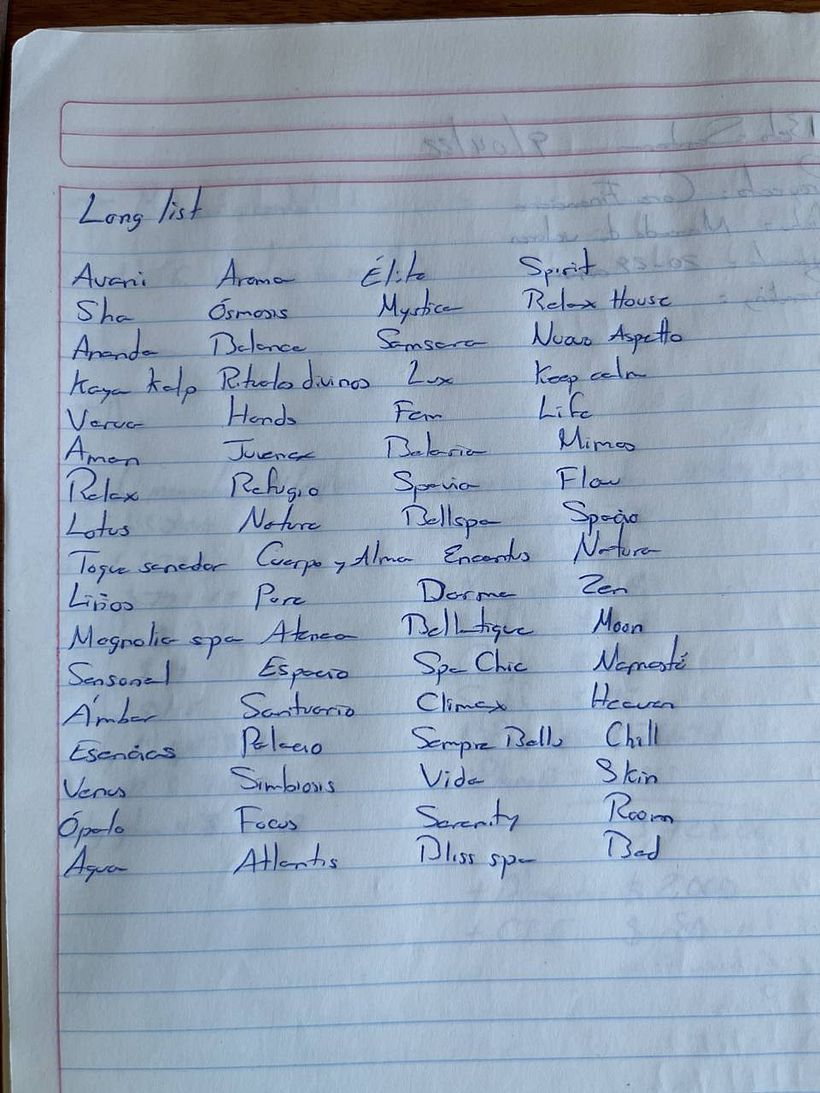 Long list
Avani Aroma Élite Spirit
Sha Ósmosis Mystica Relax House
Ananda Balance Samsara Nuovo Aspetto
Kaya Kalp Rituales divinos Lux Keep calm
Hands Fem Life
Aman Juvenex Balaria Mimos
Relax Refugio Spavia Flow
Lotus Nature Bellspa Spaçio
Toque sanador Cuerpo y Alma Encantos Natura
Lirios Pure Darma Zen
Magnolia spa Atenea Bellatique Moon
Sensonal Espacio Spa Chic Namasté
Ámbar Santuario Climax Heaven
Esencias Palacio Sempre Bella Chill
Venus Simbiosis Vida Skin
Ópalo Focus Serenity Room
Aqua Atlantis Bliss spa Bed